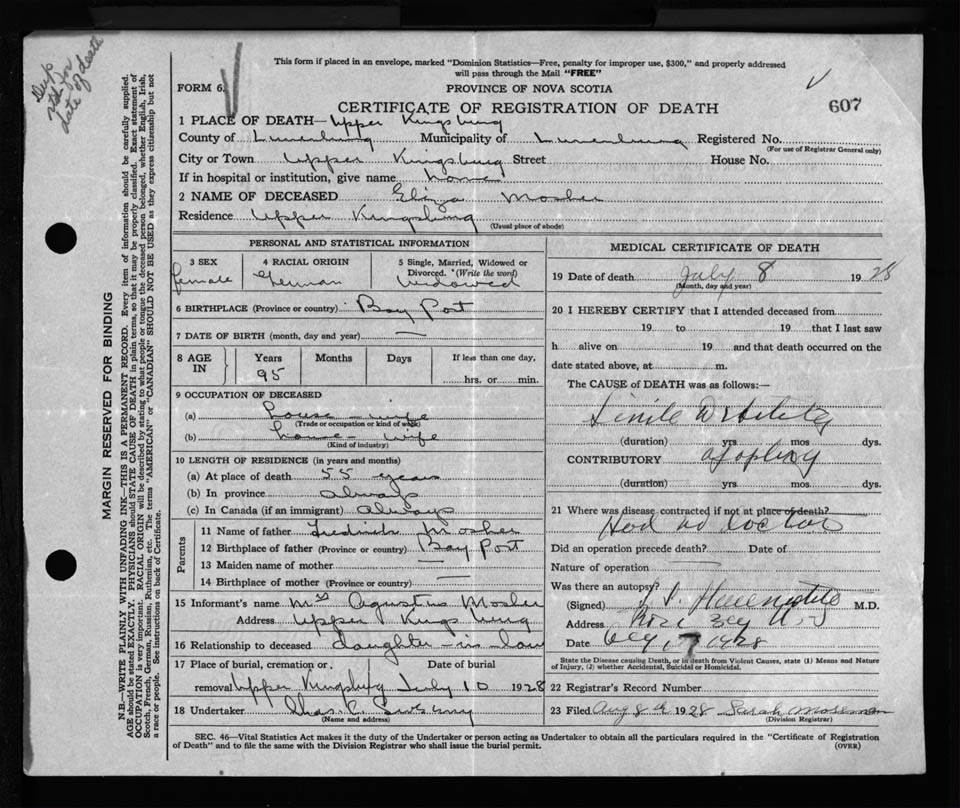 This form if placed in an envelope, marked "Dominion Statistics—Free, penalty for improper use, $300," and properly addressed
will pass through the Mail "FREE"
FORM 6.
PROVINCE OF NOVA SCOTIA
CERTIFICATE OF REGISTRATION OF DEATH
607
date of death
MARGIN RESERVED FOR BINDING
N.B.—WRITE PLAINLY WITH UNFADING INK—THIS IS A PERMANENT RECORD. Every item of information should be carefully supplied.
AGE should be stated EXACTLY. PHYSICIANS should STATE CAUSE OF DEATH in plain terms, so that it may be properly classified. Exact statement of
OCCUPATION is very important. RACIAL ORIGIN will be described by stating to what people or tongue the deceased person belonged, whether English, Irish,
Scotch, French, German, Russian, Ruthenian, etc. The terms "AMERICAN" or "CANADIAN" SHOULD NOT BE USED as they express citizenship but not
a race or people. See instructions on back of Certificate.
1 PLACE OF DEATH—Upper Kingsburg
County of Lunenburg Municipality of Lunenburg Registered No.
(For use of Registrar General only)
City or Town Upper Kingsburg Street House No.
If in hospital or institution, give name home
2 NAME OF DECEASED Eliza Mosher
Residence Upper Kingsburg
(Usual place of abode)
PERSONAL AND STATISTICAL INFORMATION
3 SEX 4 RACIAL ORIGIN 5 Single, Married, Widowed or
Divorced. (Write the word)
female German Widowed
6 BIRTHPLACE (Province or country) Bay Port
7 DATE OF BIRTH (month, day and year) —
8 AGE IN Years Months Days If less than one day,
95 hrs. or min.
9 OCCUPATION OF DECEASED
(a) house-wife
(Trade or occupation or kind of work)
(b) house-wife
(Kind of industry)
10 LENGTH OF RESIDENCE (in years and months)
(a) At place of death 55 years
(b) In province always
(c) In Canada (if an immigrant) always
Parents
11 Name of father Fredrick Mosher
12 Birthplace of father (Province or country) Bay Port
13 Maiden name of mother —
14 Birthplace of mother (Province or country) —
15 Informant's name Mrs Agustus Mosher
Address Upper Kingsburg
16 Relationship to deceased daughter-in-law
17 Place of burial, cremation or Date of burial
removal Upper Kingsburg July 10 1928
18 Undertaker Chas.
(Name and address)
MEDICAL CERTIFICATE OF DEATH
19 Date of death July 8 1928
(Month, day and year)
20 I HEREBY CERTIFY that I attended deceased from
19 to 19 that I last saw
h alive on 19 and that death occurred on the
date stated above, at m.
The CAUSE of DEATH was as follows:—
Sinile debility
(duration) yrs. mos. dys.
CONTRIBUTORY
(duration) yrs. mos. dys.
21 Where was disease contracted if not at place of death?
Had no doctor
Did an operation precede death? Date of
Nature of operation —
Was there an autopsy?
(Signed) M.D.
Address Rose Bay N.S
Date 1928
State the Disease causing Death, or in death from Violent Causes, state (1) Means and Nature
of Injury, (2) whether Accidental, Suicidal or Homicidal.
22 Registrar's Record Number
23 Filed Aug 8th 1928 Sarah Mossman
(Division Registrar)
SEC. 46—Vital Statistics Act makes it the duty of the Undertaker or person acting as Undertaker to obtain all the particulars required in the "Certificate of Registration
of Death" and to file the same with the Division Registrar who shall issue the burial permit. (OVER)